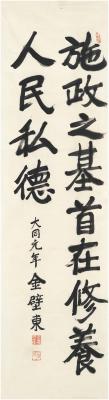 施政之基首在修養
人民私德
大同元年 金璧東